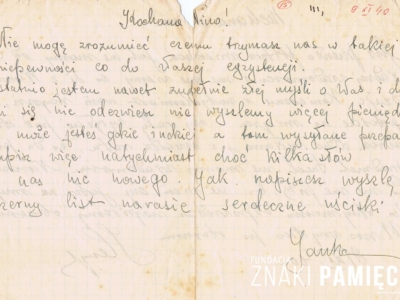 8 XI 40
Kochana Nino!
Nie mogę zrozumieć czemu trzymasz nas w takiej
niepewności co do Waszej egzystencji.
statnio jestem nawet zupełnie złej myśli o Was i d
i się nie odezwiesz nie wyszlemy więcej pienięd
może jesteś gdzie indziej a tam wysyłane przepa
apisz więc natychmiast choć kilka słów
nas nic nowego. Jak napiszesz wyszlę
zerny list narazie serdeczne uściski
Janka
FUNDACJA
ZNAKI PAMIĘC